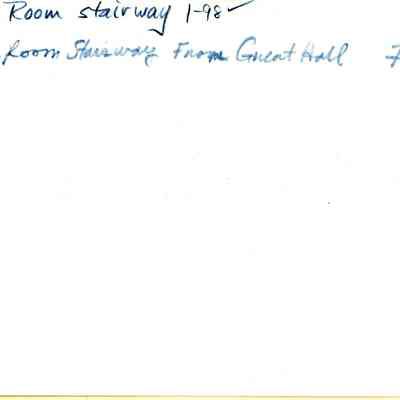 Room stairway 1-98 ✓
Room Stairway From Great Hall 7